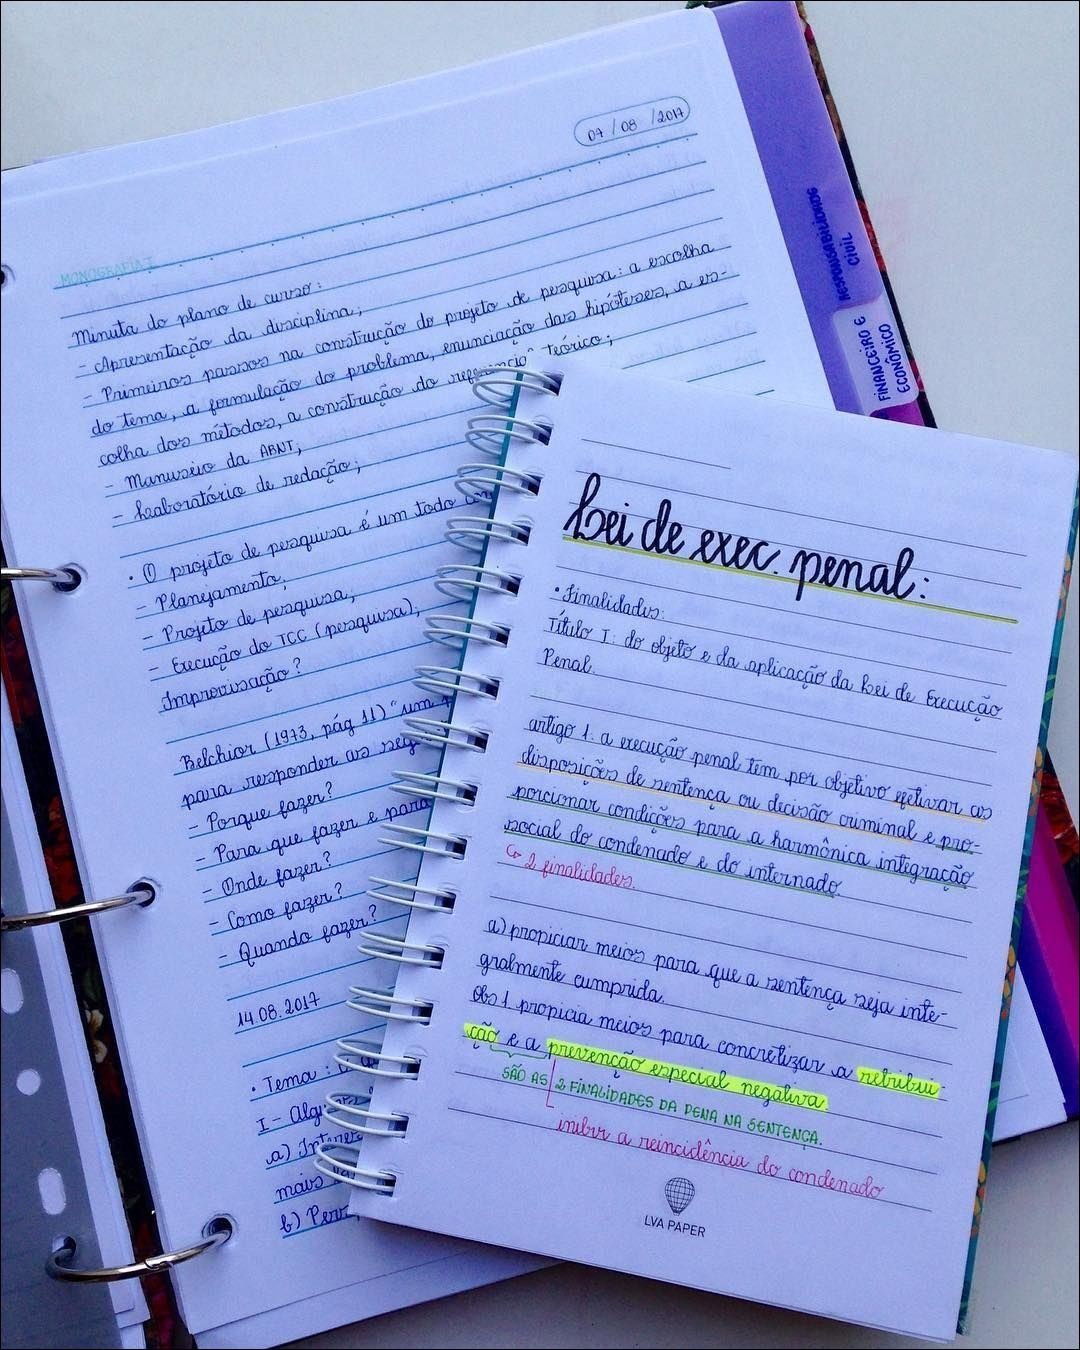 07 / 08 / 2017
MONOGRAFIA I
Minuta do plano de curso:
- Apresentação da disciplina;
- Primeiros passos na construção do projeto de pesquisa: a escolha
do tema, a formulação do problema, enunciação das hipóteses, a es-
colha dos métodos, a construção do referencial teórico;
- Manuseio da ABNT;
- Laboratório de redação;
• O projeto de pesquisa é um todo
- Planejamento;
- Projeto de pesquisa;
- Execução do TCC (pesquisa);
Improvisação?
Belchior (1973, pág 11) "um
para responder as
- Porque fazer?
- Para que fazer e para
- Onde fazer?
- Como fazer?
- Quando fazer?
14.08.2017
• Tema:
I -
a)
mais
b)
RESPONSABILIDADE
CIVIL
FINANCEIRO E
ECONÔMICO
Lei de exec. penal:
• Finalidades:
Título I: do objeto e da aplicação da Lei de Execução
Penal.
artigo 1: a execução penal tem por objetivo efetivar as
disposições de sentença ou decisão criminal e pro-
porcionar condições para a harmônica integração
social do condenado e do internado.
↳ 2 finalidades.
a) propiciar meios para que a sentença seja inte-
gralmente cumprida.
Obs 1 propicia meios para concretizar a retribui
ção e a prevenção especial negativa.
SÃO AS 2 FINALIDADES DA PENA NA SENTENÇA.
inibir a reincidência do condenado
LVA PAPER